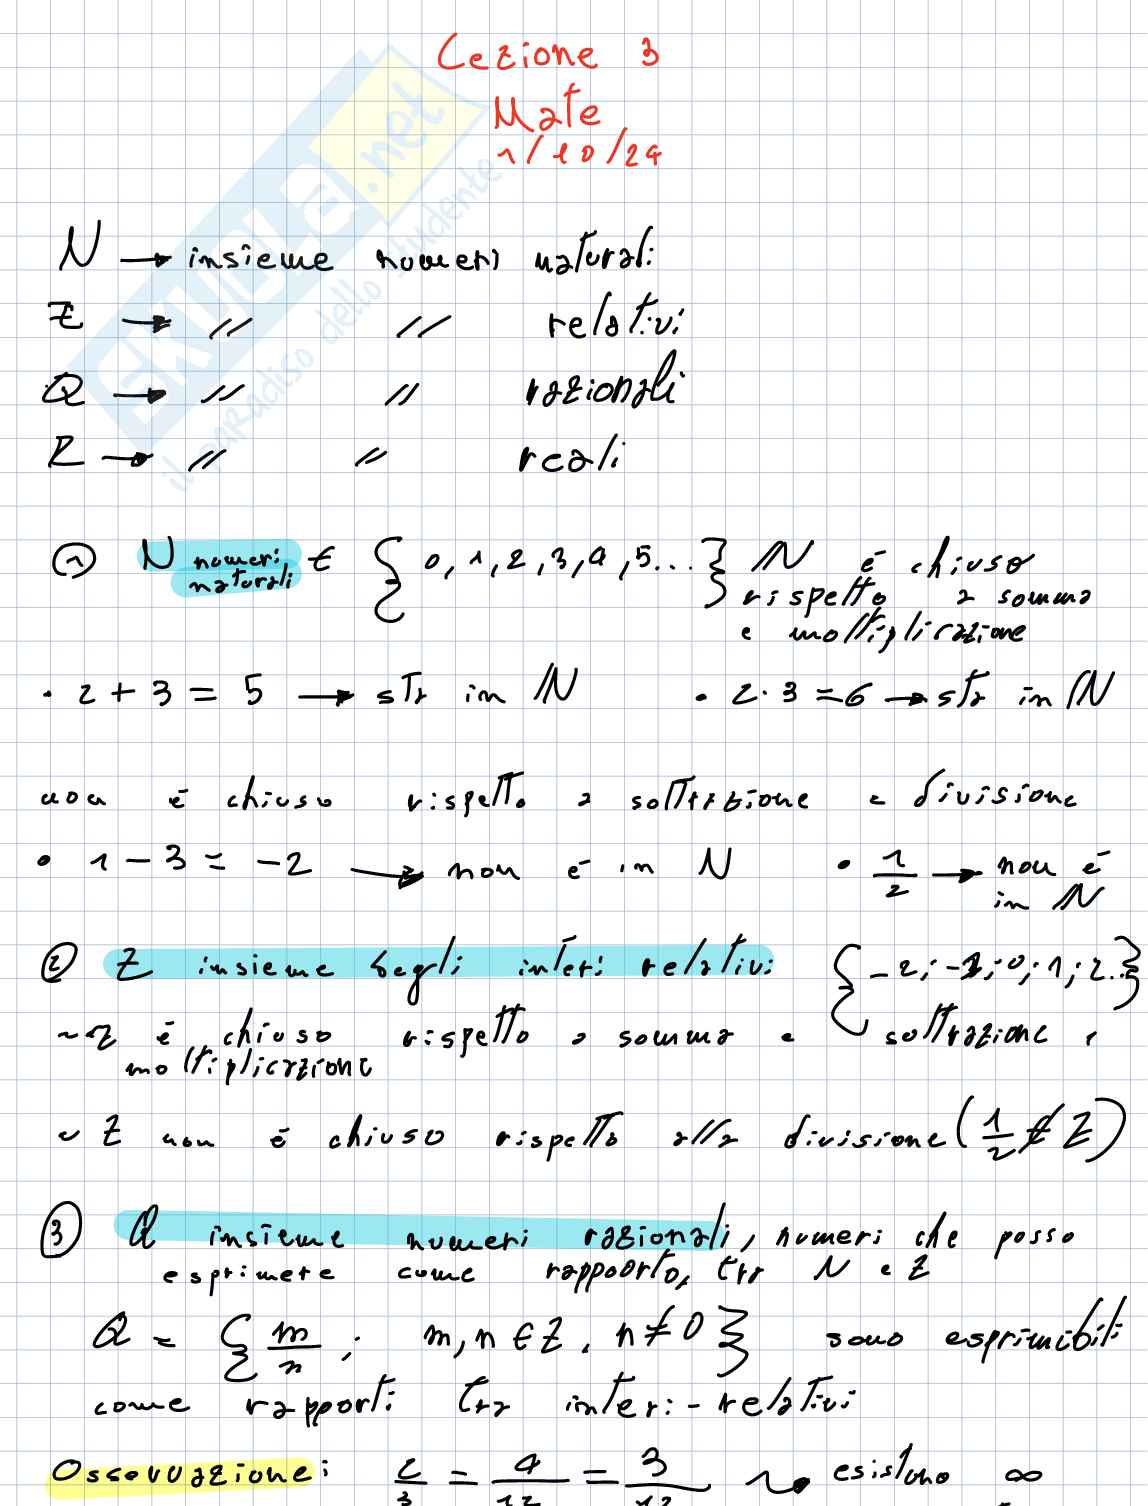 Lezione 3
Mate
1/10/24
SKUOLA.net
il paradiso dello studente
N → insieme numeri naturali
Z → // // relativi
Q → // // razionali
R → // // reali
① N numeri naturali ∈ { 0, 1, 2, 3, 4, 5... } N é chiuso
rispetto a somma
e moltiplicazione
• 2 + 3 = 5 → sta in N • 2 · 3 = 6 → sta in N
non é chiuso rispetto a sottrazione e divisione
• 1 - 3 = -2 → non é in N • 1/2 → non é
in N
② Z insieme degli interi relativi { -2; -1; 0; 1; 2.. }
~ Z é chiuso rispetto a somma e sottrazione e
moltiplicazione
~ Z non é chiuso rispetto alla divisione (1/2 ∉ Z)
③ Q insieme numeri razionali, numeri che posso
esprimere come rappoorto, tra N e Z
Q = { m/n ; m, n ∈ Z, n ≠ 0 } sono esprimibili
come rapporti tra interi - relativi
Osservazione: 2/3 = 4/12 = 3/12 ~> esistono ∞